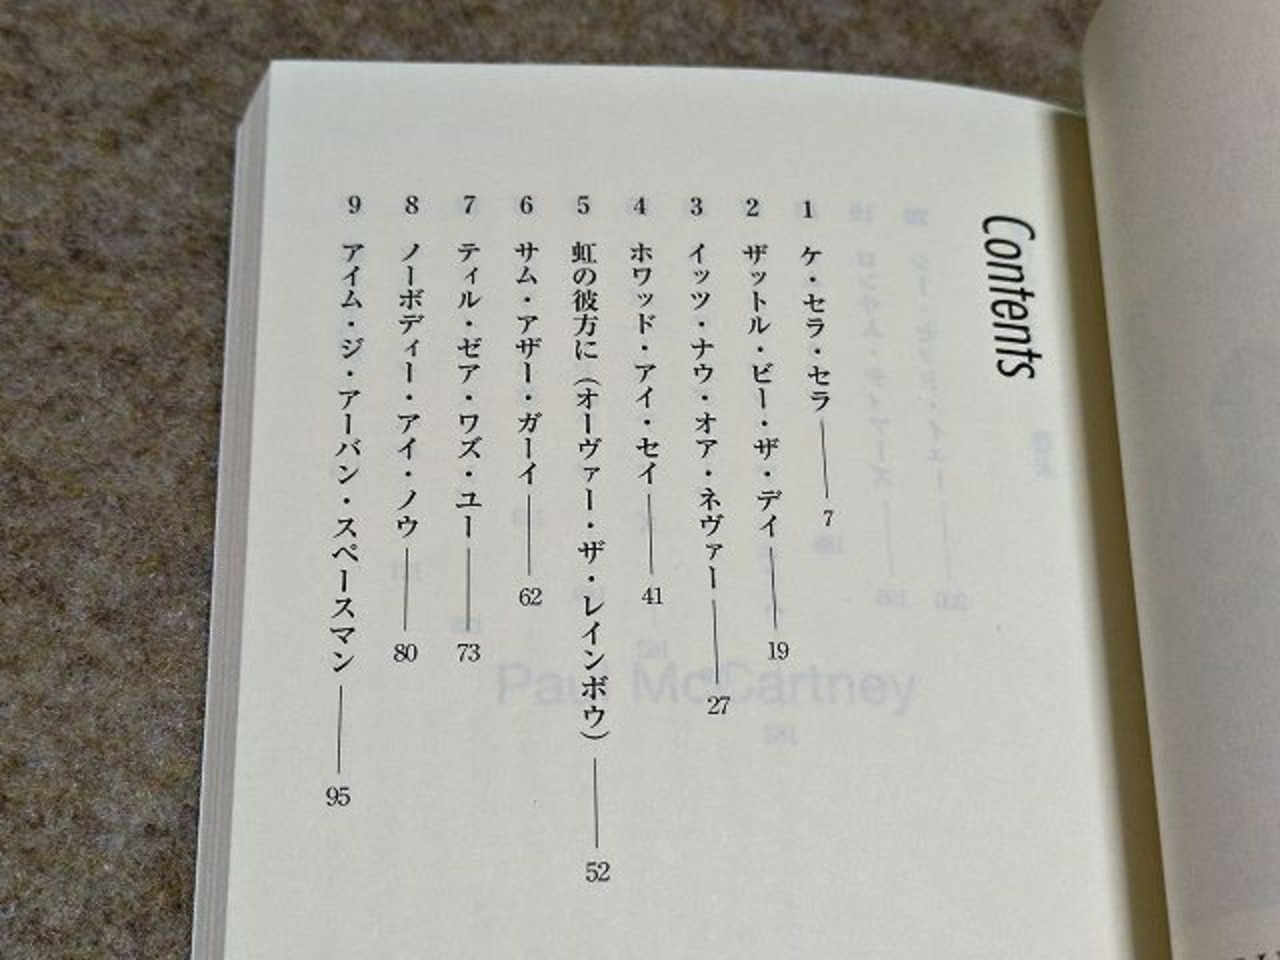 Contents
1 ケ・セラ・セラ 7
2 ザットル・ビー・ザ・デイ 19
3 イッツ・ナウ・オア・ネヴァー 27
4 ホワッド・アイ・セイ 41
5 虹の彼方に（オーヴァー・ザ・レインボウ） 52
6 サム・アザー・ガーイ 62
7 ティル・ゼア・ワズ・ユー 73
8 ノーボディー・アイ・ノウ 80
9 アイム・ジ・アーバン・スペースマン 95
Paul McCartney